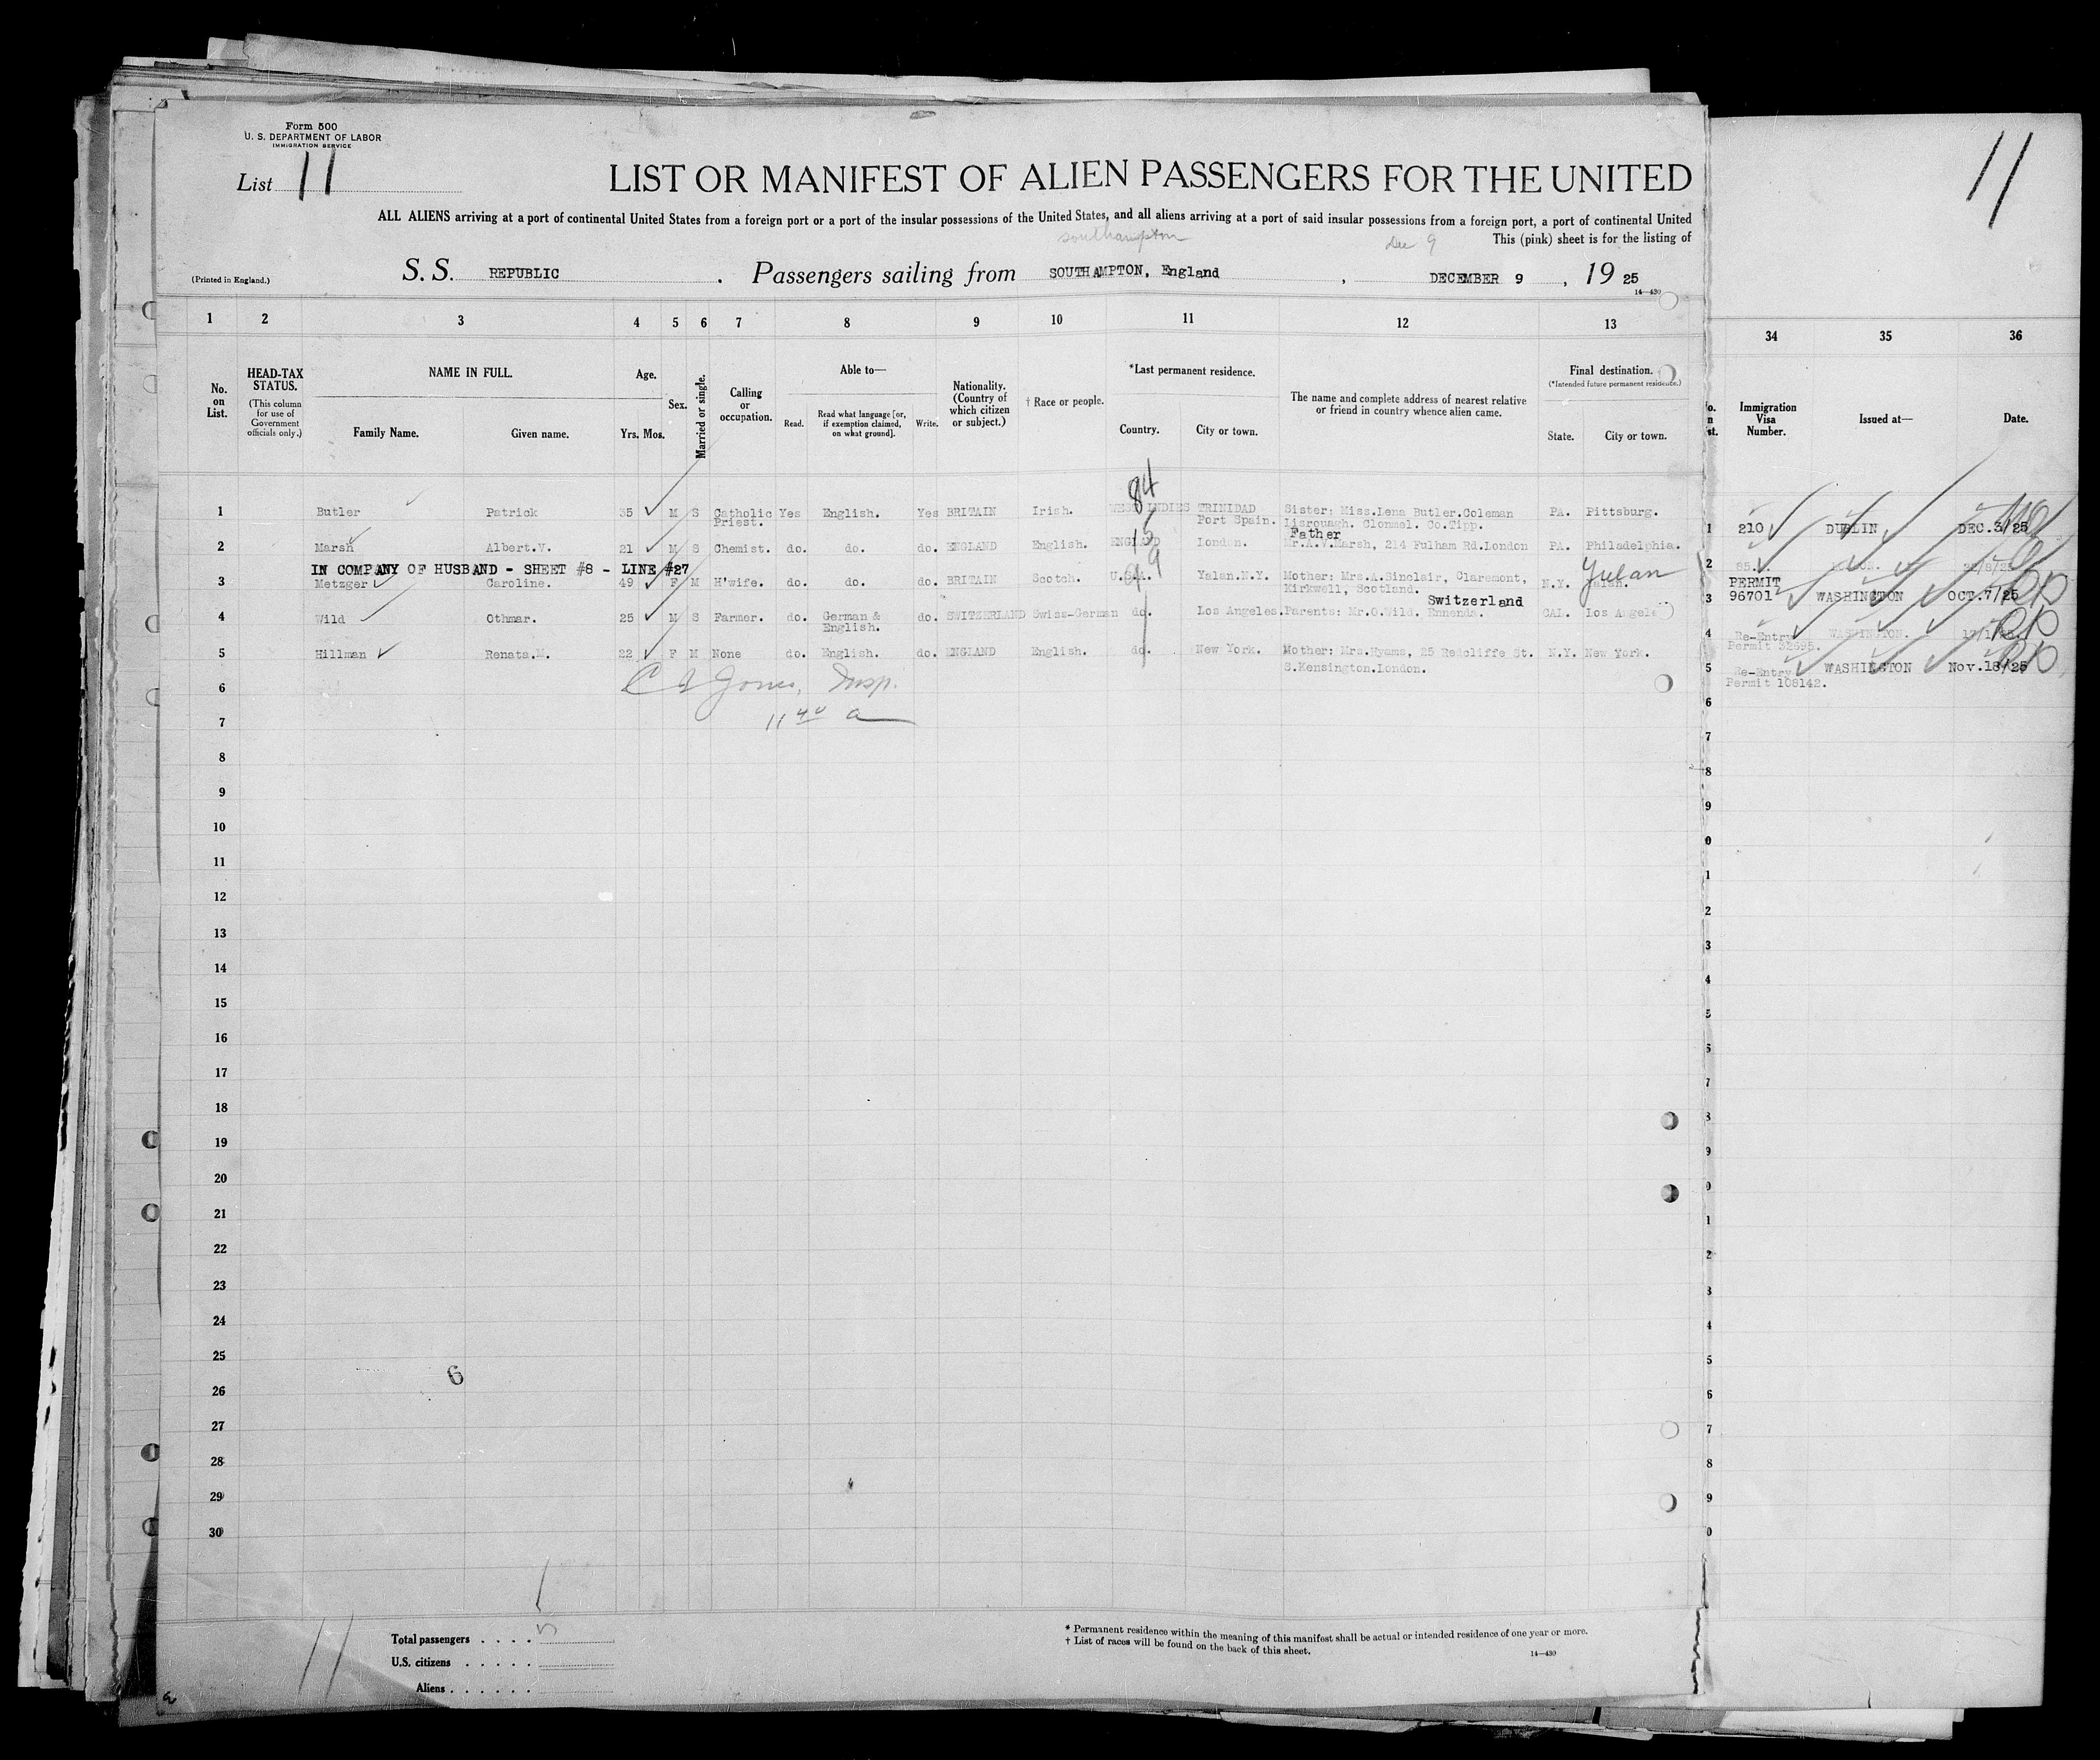 Form 500
U. S. DEPARTMENT OF LABOR
IMMIGRATION SERVICE
List 11
11
LIST OR MANIFEST OF ALIEN PASSENGERS FOR THE UNITED
ALL ALIENS arriving at a port of continental United States from a foreign port or a port of the insular possessions of the United States, and all aliens arriving at a port of said insular possessions from a foreign port, a port of continental United
Southampton Dec 9 This (pink) sheet is for the listing of
(Printed in England.) S. S. REPUBLIC . Passengers sailing from SOUTHAMPTON, England , DECEMBER 9 , 19 25
14—430
1 2 3 4 5 6 7 8 9 10 11 12 13 34 35 36
No. on List.
HEAD-TAX STATUS.
(This column for use of Government officials only.)
NAME IN FULL.
Family Name. Given name.
Age.
Yrs. Mos.
Sex.
Married or single.
Calling or occupation.
Able to—
Read. Read what language [or, if exemption claimed, on what ground]. Write.
Nationality. (Country of which citizen or subject.)
† Race or people.
*Last permanent residence.
Country. City or town.
The name and complete address of nearest relative or friend in country whence alien came.
Final destination.
(*Intended future permanent residence.)
State. City or town.
Immigration Visa Number.
Issued at—
Date.
84
1 Butler Patrick 35 M S Catholic Priest. Yes English. Yes BRITAIN Irish. WEST INDIES TRINIDAD Port Spain. Sister: Miss.Lena Butler.Coleman Lisrouagh. Clonmel. Co.Tipp. PA. Pittsburg. 1 210 DUBLIN DEC.3/25
15
Father
2 Marsh Albert.V. 21 M S Chemist. do. do. do. ENGLAND English. ENGLAND London. Mr.A.V.Marsh, 214 Fulham Rd.London PA. Philadelphia. 2
IN COMPANY OF HUSBAND - SHEET #8 - LINE #27
99
3 Metzger Caroline. 49 F M H'wife. do. do. do. BRITAIN Scotch. U.S.A. Yalan.N.Y. Mother: Mrs.A.Sinclair, Claremont, Kirkwell, Scotland. N.Y. Yulan 3 PERMIT 96701 WASHINGTON OCT.7/25
Switzerland
4 Wild Othmar. 25 M S Farmer. do. German & English. do. SWITZERLAND Swiss-German do. Los Angeles. Parents: Mr.O.Wild. Ennenda. CAL. Los Angele 4 Re-Entry Permit 52695. WASHINGTON.
5 Hillman Renata.M. 22 F M None do. English. do. ENGLAND English. do. New York. Mother: Mrs.Hyams, 25 Redcliffe St. S.Kensington.London. N.Y. New York. 5 Re-Entry Permit 108142. WASHINGTON Nov.18/25
Jones, Insp.
6
11 40 a
7
8
9
10
11
12
13
14
15
16
17
18
19
20
21
22
23
24
25
6
26
27
28
29
30
11
Total passengers . . . . 5
U.S. citizens . . . . .
Aliens . . . . . .
* Permanent residence within the meaning of this manifest shall be actual or intended residence of one year or more.
† List of races will be found on the back of this sheet.
14—430